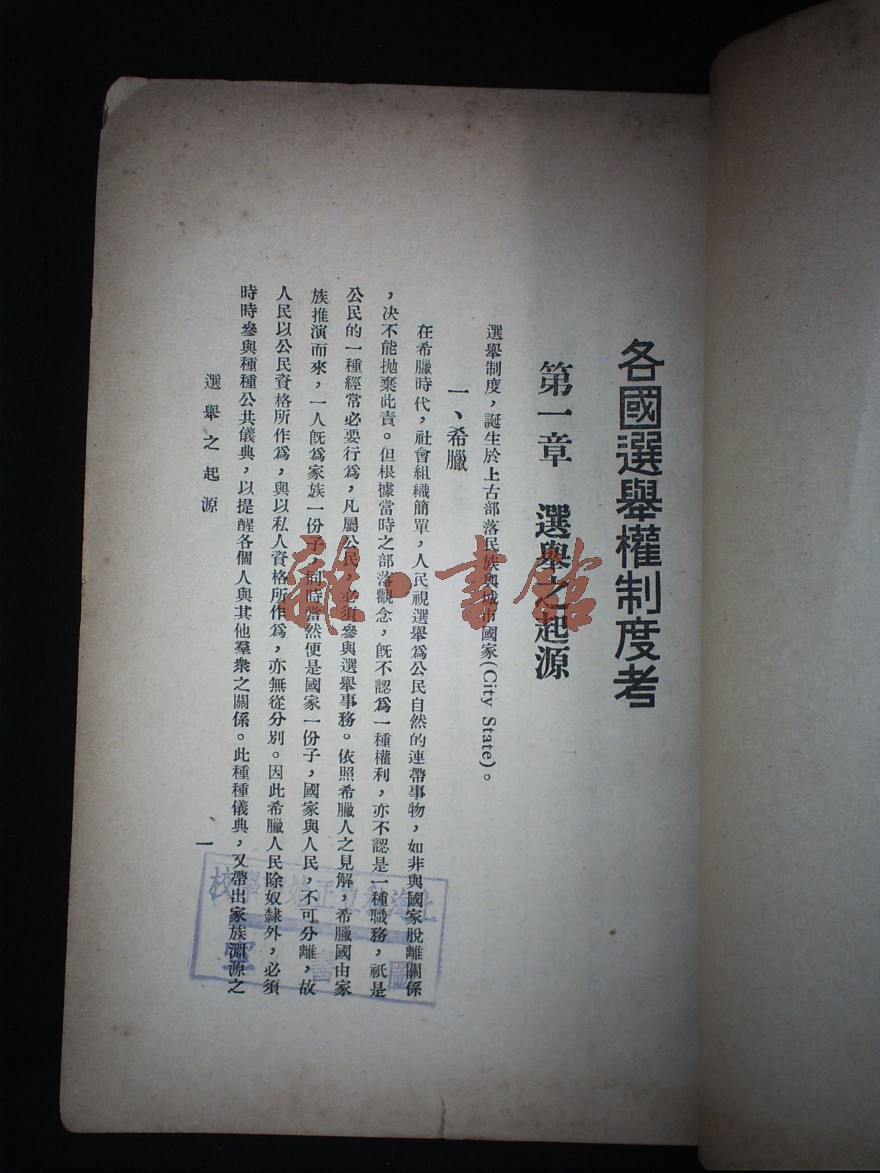 各國選舉權制度考
第一章　選舉之起源
選舉制度，誕生於上古部落民族與城市國家(City State)。
一、希臘
在希臘時代，社會組織簡單，人民視選舉爲公民自然的連帶事物，如非與國家脫離關係
，决不能拋棄此責。但根據當時之部落觀念，既不認爲一種權利，亦不認是一種職務，祇是
公民的一種經常必要行爲，凡屬公民，必須參與選舉事務。依照希臘人之見解，希臘國由家
族推演而來，一人既爲家族一份子，同時當然便是國家一份子，國家與人民，不可分離，故
人民以公民資格所作爲，與以私人資格所作爲，亦無從分別。因此希臘人民除奴隸外，必須
時時參與種種公共儀典，以提醒各個人與其他羣衆之關係。此種種儀典，又帶出家族淵源之
選舉之起源
一
雜·書館
上海
學校
圖書室